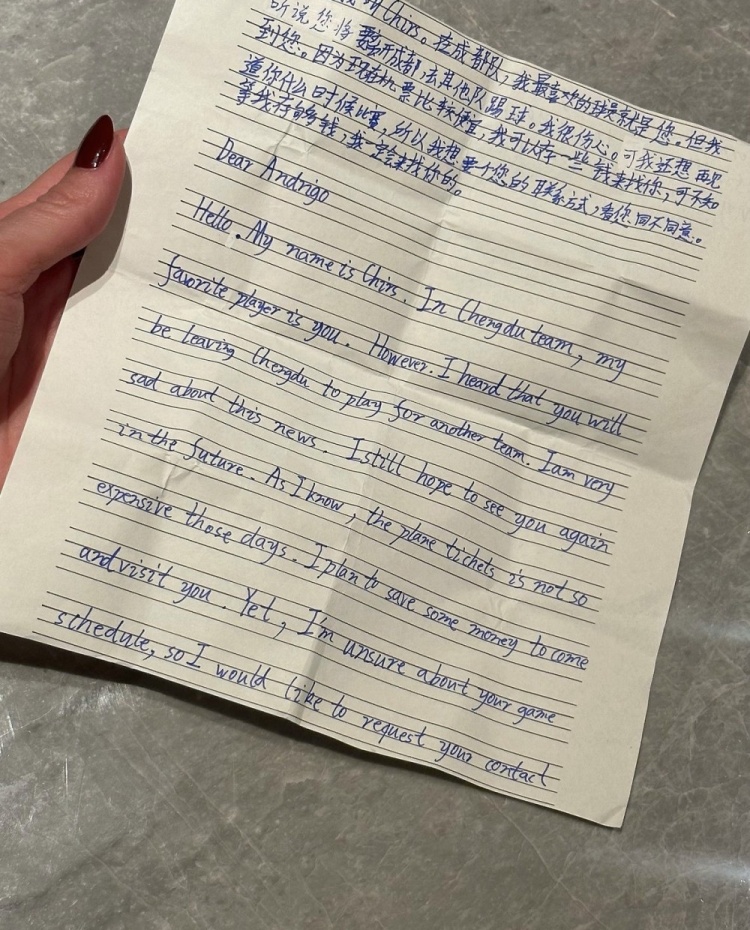 Chirs。在成都队,我最喜欢的球员就是您。但我
听说您将离开成都去其他队踢球。我很伤心。可我还想再见
到您。因为现在机票比较便宜,我可以存一些钱来找你,可不知
道你什么时候比赛,所以我想要个您的联系方式,看您同不同意。
等我存够钱,我一定会来找你的。
Dear Andrigo
Hello. My name is Chirs. In Chengdu team, my
favorite player is you. However. I heard that you will
be leaving Chengdu to play for another team. I am very
sad about this news. I still hope to see you again
in the future. As I know, the plane tickets is not so
expensive those days. I plan to save some money to come
and visit you. Yet, I'm unsure about your game
schedule, so I would like to request your contact